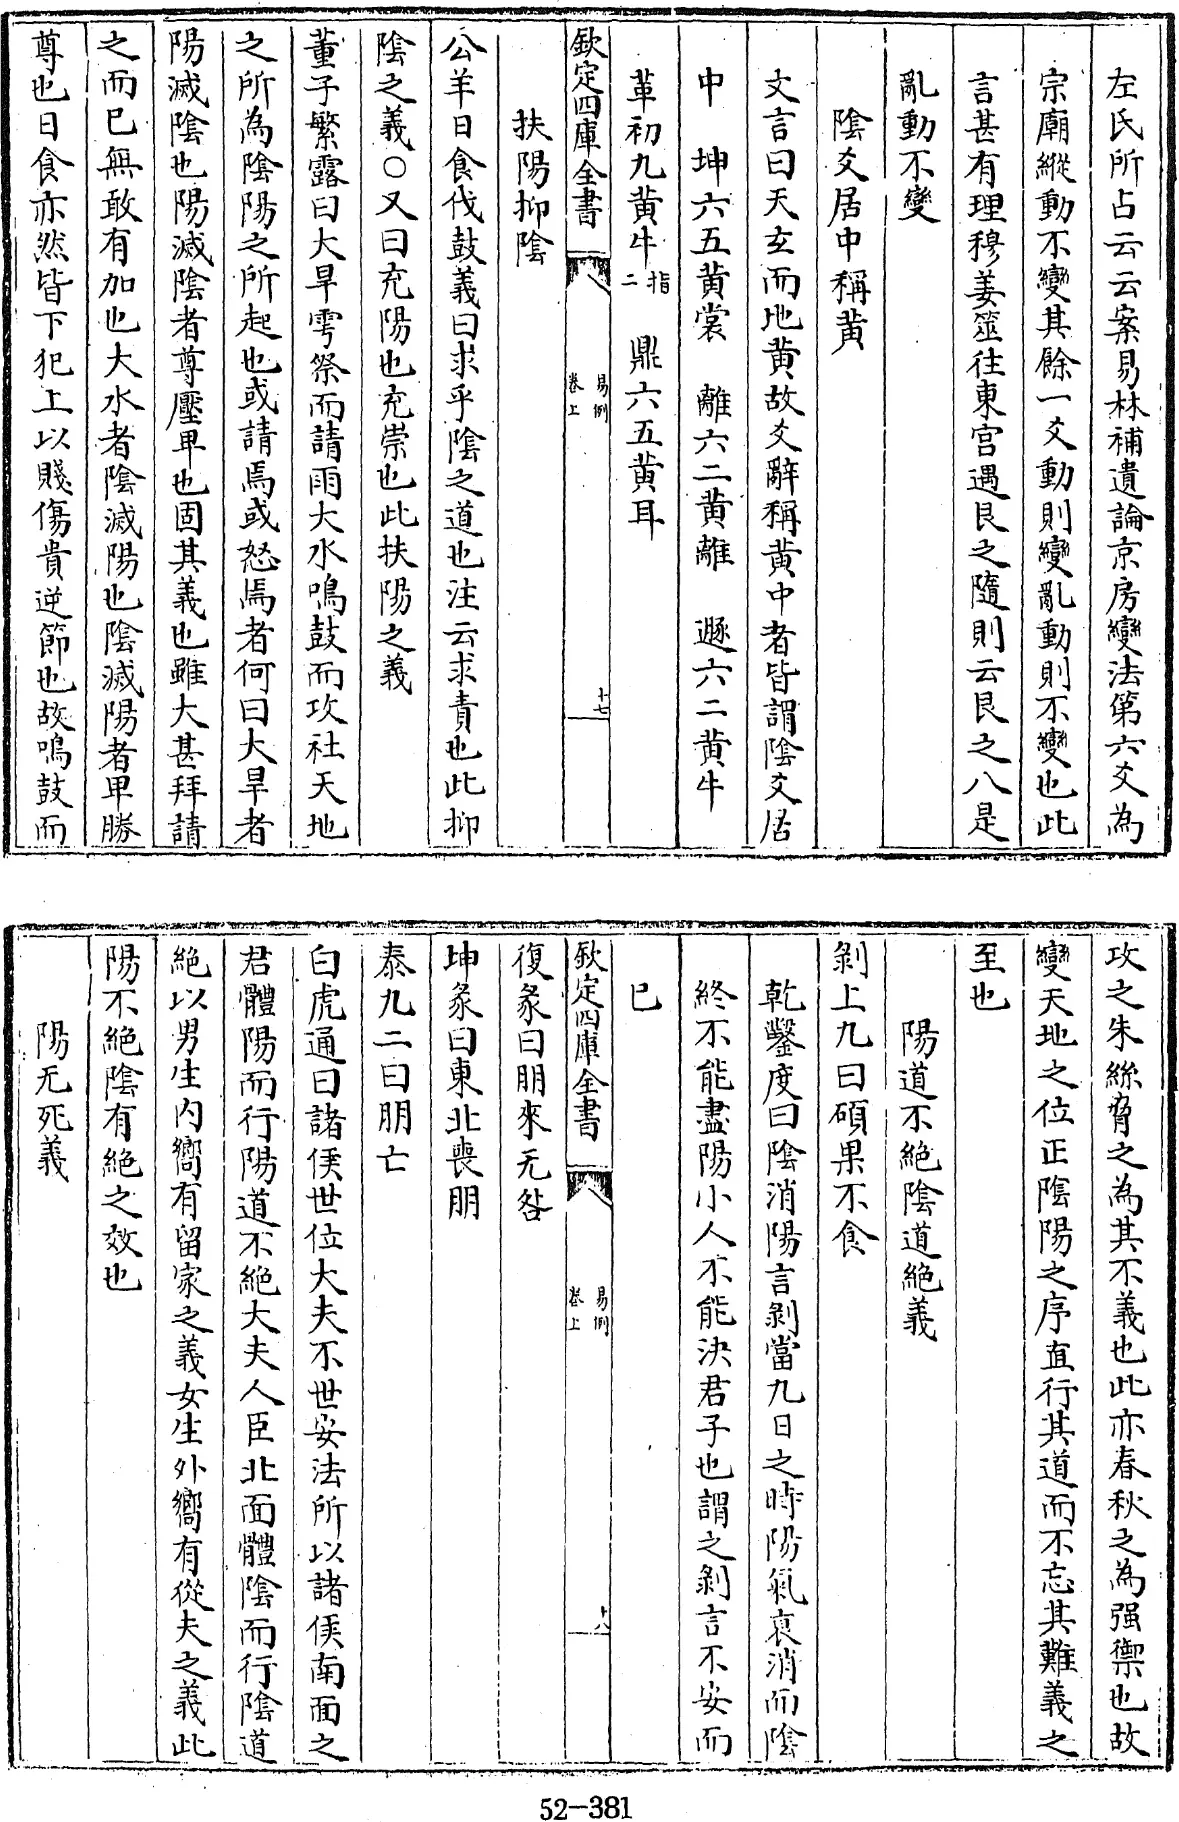 左氏所占云云案易林補遺論京房變法第六爻為
宗廟縱動不變其餘一爻動則變亂動則不變也此
言甚有理穆姜筮往東宮遇艮之隨則云艮之八是
亂動不變
陰爻居中稱黃
文言曰天玄而地黃故爻辭稱黃中者皆謂陰爻居
中　坤六五黃裳　離六二黃離　遯六二黃牛
革初九黃牛指二　鼎六五黃耳
欽定四庫全書　易例卷上　十七
扶陽抑陰
公羊日食伐鼓義曰求乎陰之道也注云求責也此抑
陰之義○又曰充陽也充崇也此扶陽之義
董子繁露曰大旱雩祭而請雨大水鳴鼓而攻社天地
之所為陰陽之所起也或請焉或怒焉者何曰大旱者
陽滅陰也陽滅陰者尊壓卑也固其義也雖大甚拜請
之而已無敢有加也大水者陰滅陽也陰滅陽者卑勝
尊也日食亦然皆下犯上以賤傷貴逆節也故鳴鼓而
攻之朱絲脅之為其不義也此亦春秋之為强禦也故
變天地之位正陰陽之序直行其道而不忘其難義之
至也
陽道不絕陰道絕義
剝上九曰碩果不食
乾鑿度曰陰消陽言剝當九日之時陽氣衰消而陰
終不能盡陽小人不能決君子也謂之剝言不安而
已
欽定四庫全書　易例卷上　十八
復彖曰朋來无咎
坤彖曰東北喪朋
泰九二曰朋亡
白虎通曰諸侯世位大夫不世安法所以諸侯南面之
君體陽而行陽道不絕大夫人臣北面體陰而行陰道
絕以男生內嚮有留家之義女生外嚮有從夫之義此
陽不絕陰有絕之效也
陽无死義
52-381